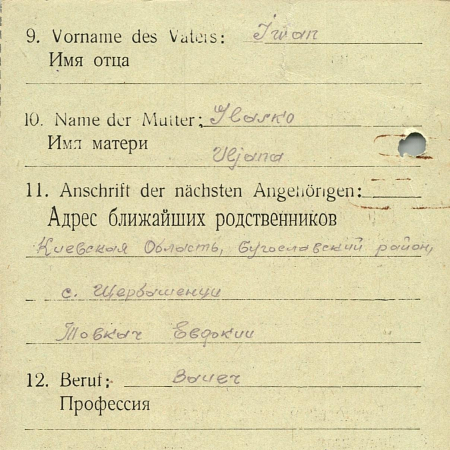 9. Vorname des Vaters: Iwan
Имя отца
10. Name der Mutter: Ilasko
Имя матери Uljana
11. Anschrift der nächsten Angehörigen:
Адрес ближайших родственников
Киевская Область, Бугославский район,
с. Щербашенци
Товкач Евдокии
12. Beruf:
Профессия